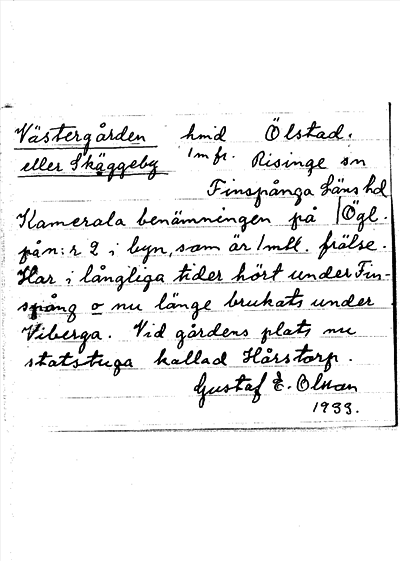 Västergården hmd Ölstad.
eller Skäggeby 1 m fr. Risinge sn
Finspånga läns hd
Kamerala benämningen på Ögl.
på n:r 2 i byn, som är 1 mtl. frälse.
Har i långliga tider hört under Fin-
spång o nu länge brukats under
Viberga. Vid gårdens plats nu
statstuga kallad Hårstorp.
Gustaf E. Olsson
1933.